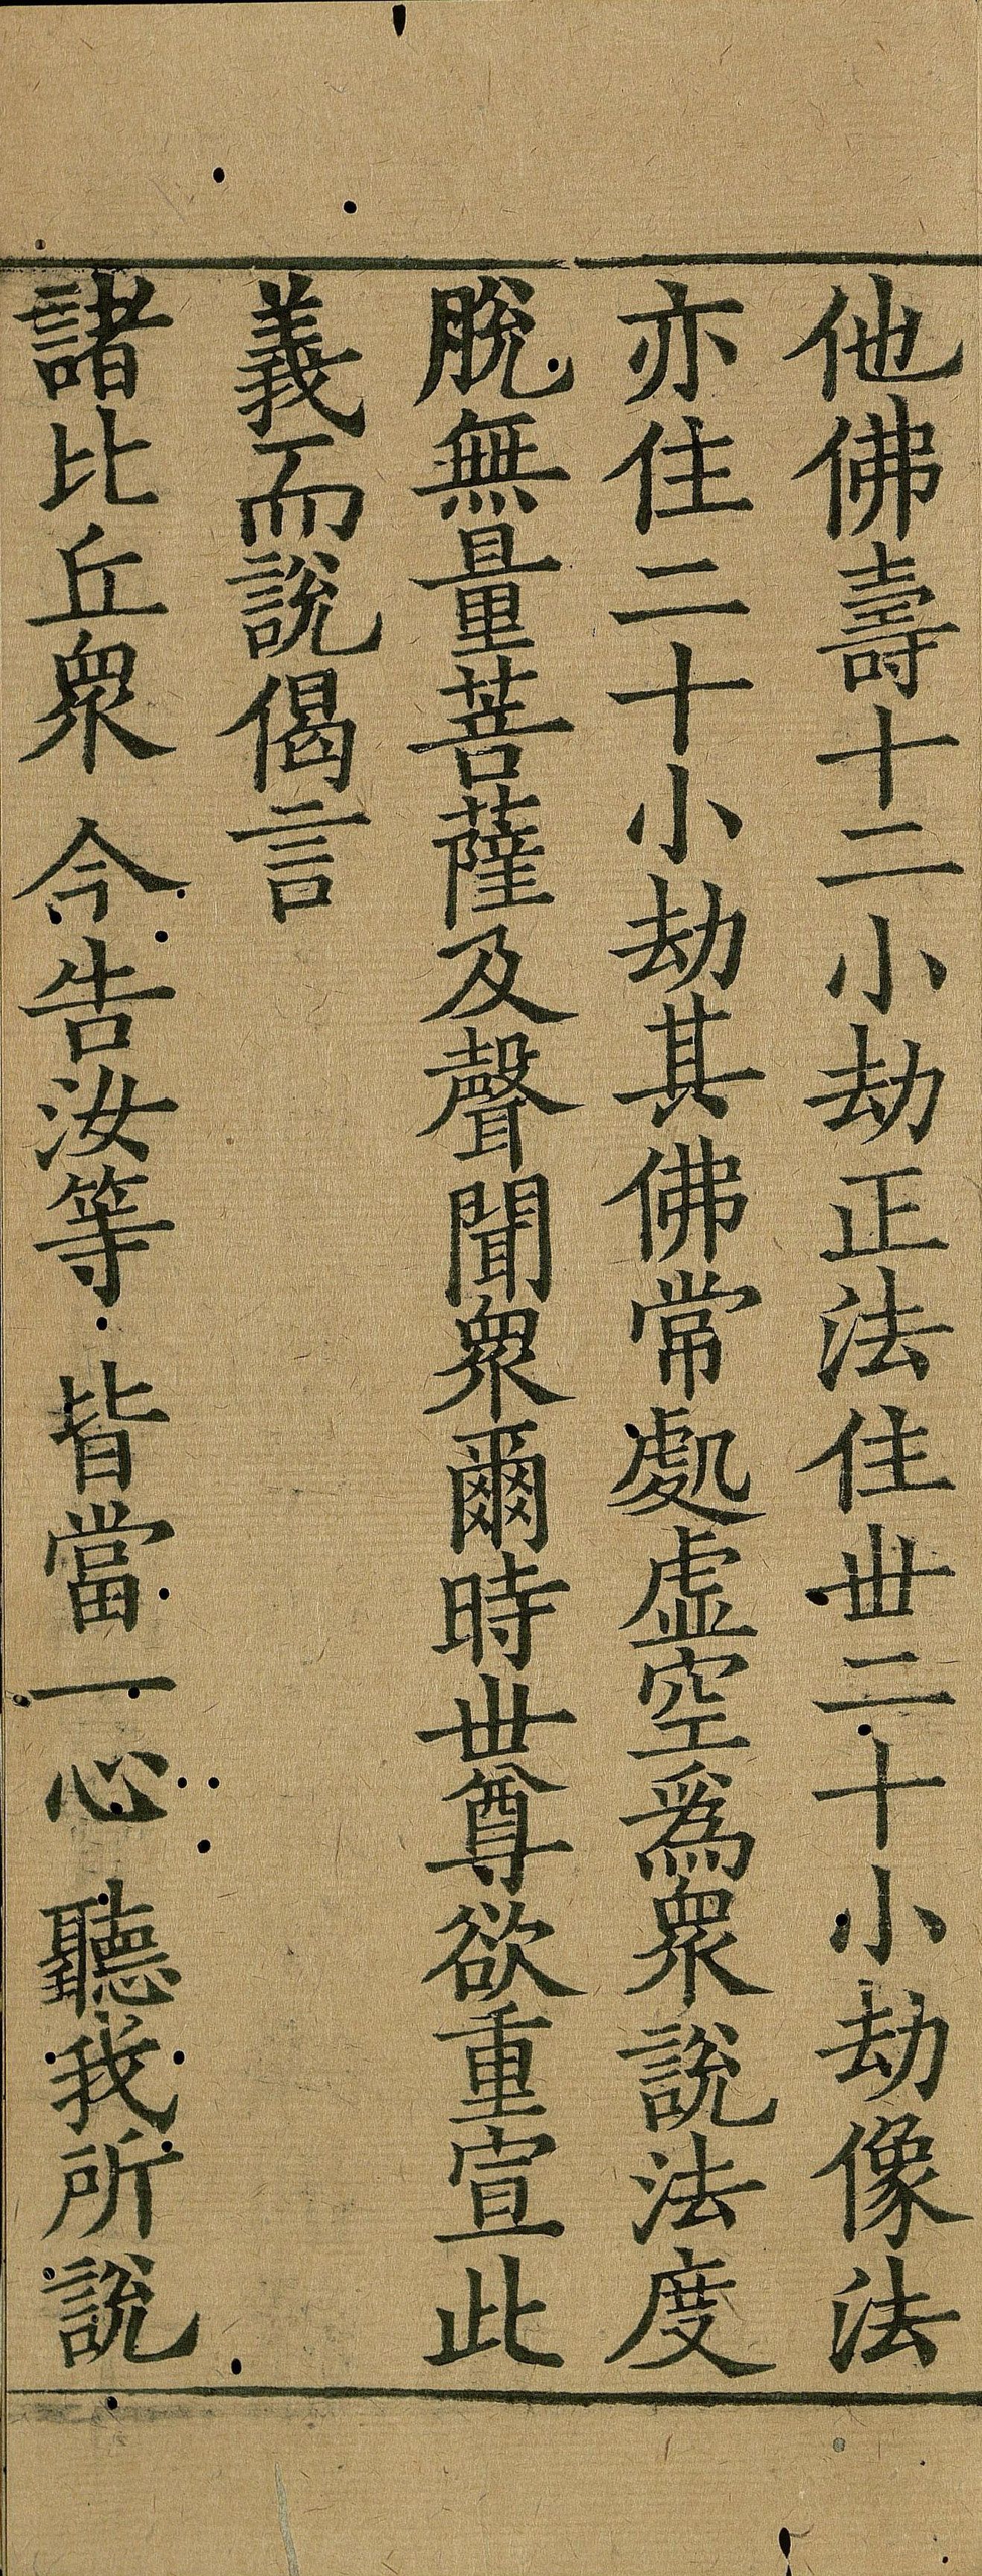 他佛壽十二小劫正法住世二十小劫像法
亦住二十小劫其佛常處虛空爲衆說法度
脫無量菩薩及聲聞衆爾時世尊欲重宣此
義而說偈言
諸比丘衆　今告汝等　皆當一心　聽我所說